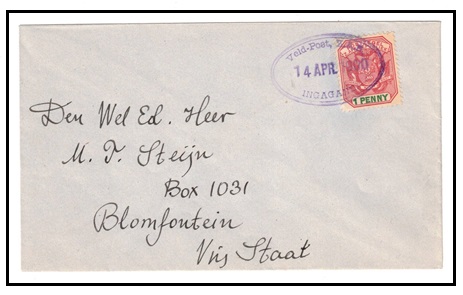 Veld-Post,
14 APR
INGAGANE
1 PENNY
Den Wel Ed. Heer
M. T. Steijn
Box 1031
Blomfontein
Vrij Staat